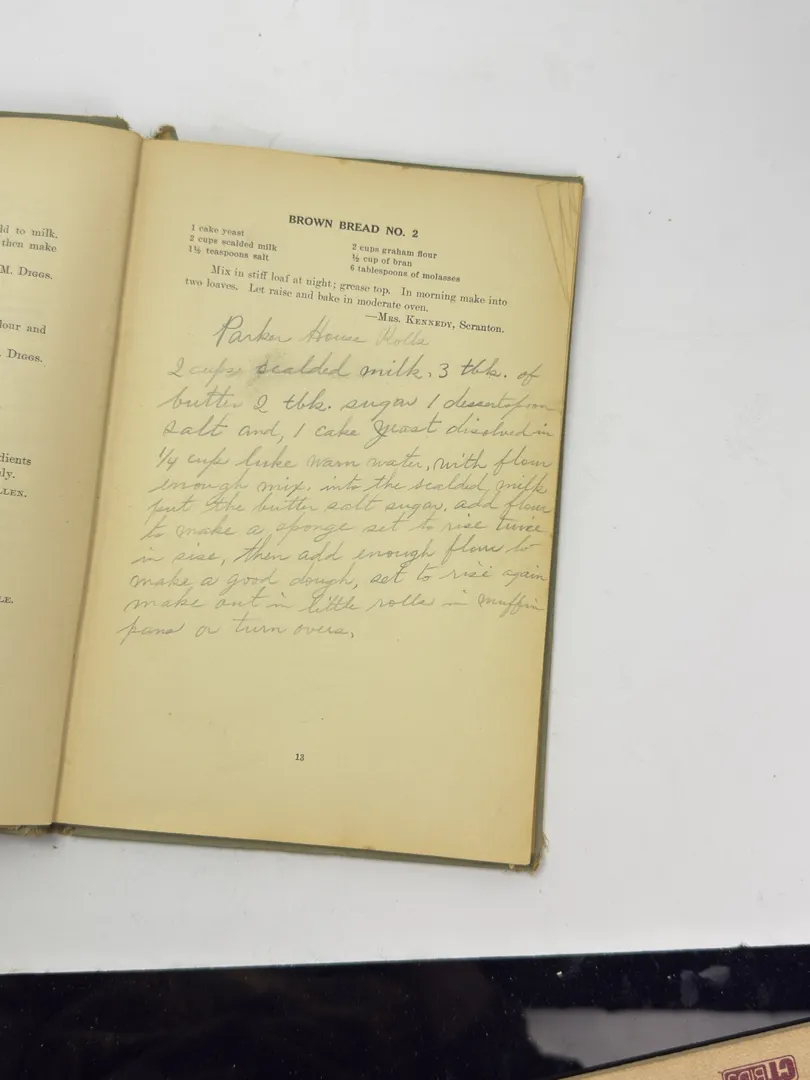 ld to milk.
then make
M. DIGGS.
lour and
. DIGGS.
dients
ly.
LLEN.
LE.
BROWN BREAD NO. 2
1 cake yeast
2 cups scalded milk
1½ teaspoons salt
2 cups graham flour
½ cup of bran
6 tablespoons of molasses
Mix in stiff loaf at night; grease top. In morning make into
two loaves. Let raise and bake in moderate oven.
—MRS. KENNEDY, Scranton.
Parker House Rolls
2 cups scalded milk, 3 tbk. of
butter 2 tbk. sugar 1 dessertspoon
salt and, 1 cake yeast disolved in
¼ cup luke warm water, with flour
enough mix. into the scalded milk
put the butter salt sugar. add flour
to make a sponge set to rise twice
in sise, then add enough flour to
make a good dough, set to rise again
make out in little rolls in muffin
pans or turn overs.
13